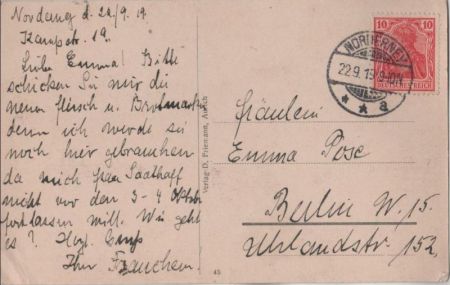 Nordeney d. 22/9. 19
Kampstr. 19.
Liebe Emma! Bitte
schicken Sie mir die
neuen Fleisch u. Brotmarken
denn ich werde sie
noch hier gebrauchen
da mich Frau Saathoff
nicht vor den 3-4 Oktobr
fortlassen will. Wie geht
es? Hrzl.
Ihr
Verlag D. Friemann, Aurich
45
Fräulein
Emma Pose
Berlin W. 15.
Uhlandstr. 152.
NORDERNEY
22.9.19. 9-10 V.
* * a
10 10
DEUTSCHES REICH